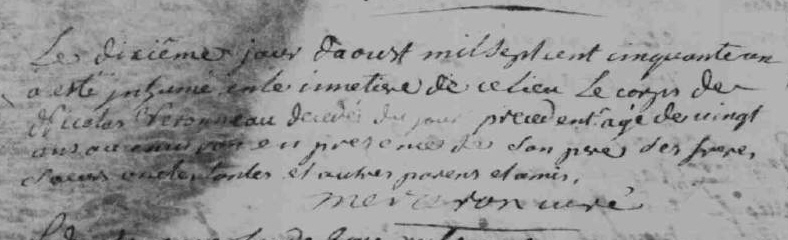 Le dixiême jour d'aoust mil sept cent cinquante un
a esté inhumé en le cimetiere de ce lieu Le corps de
Nicolas Veronneau decedé du jour precedent agé de vingt
ans ou environ en presence de son pere des freres
soeurs oncles tantes et autres parens et amis.
merceron curé